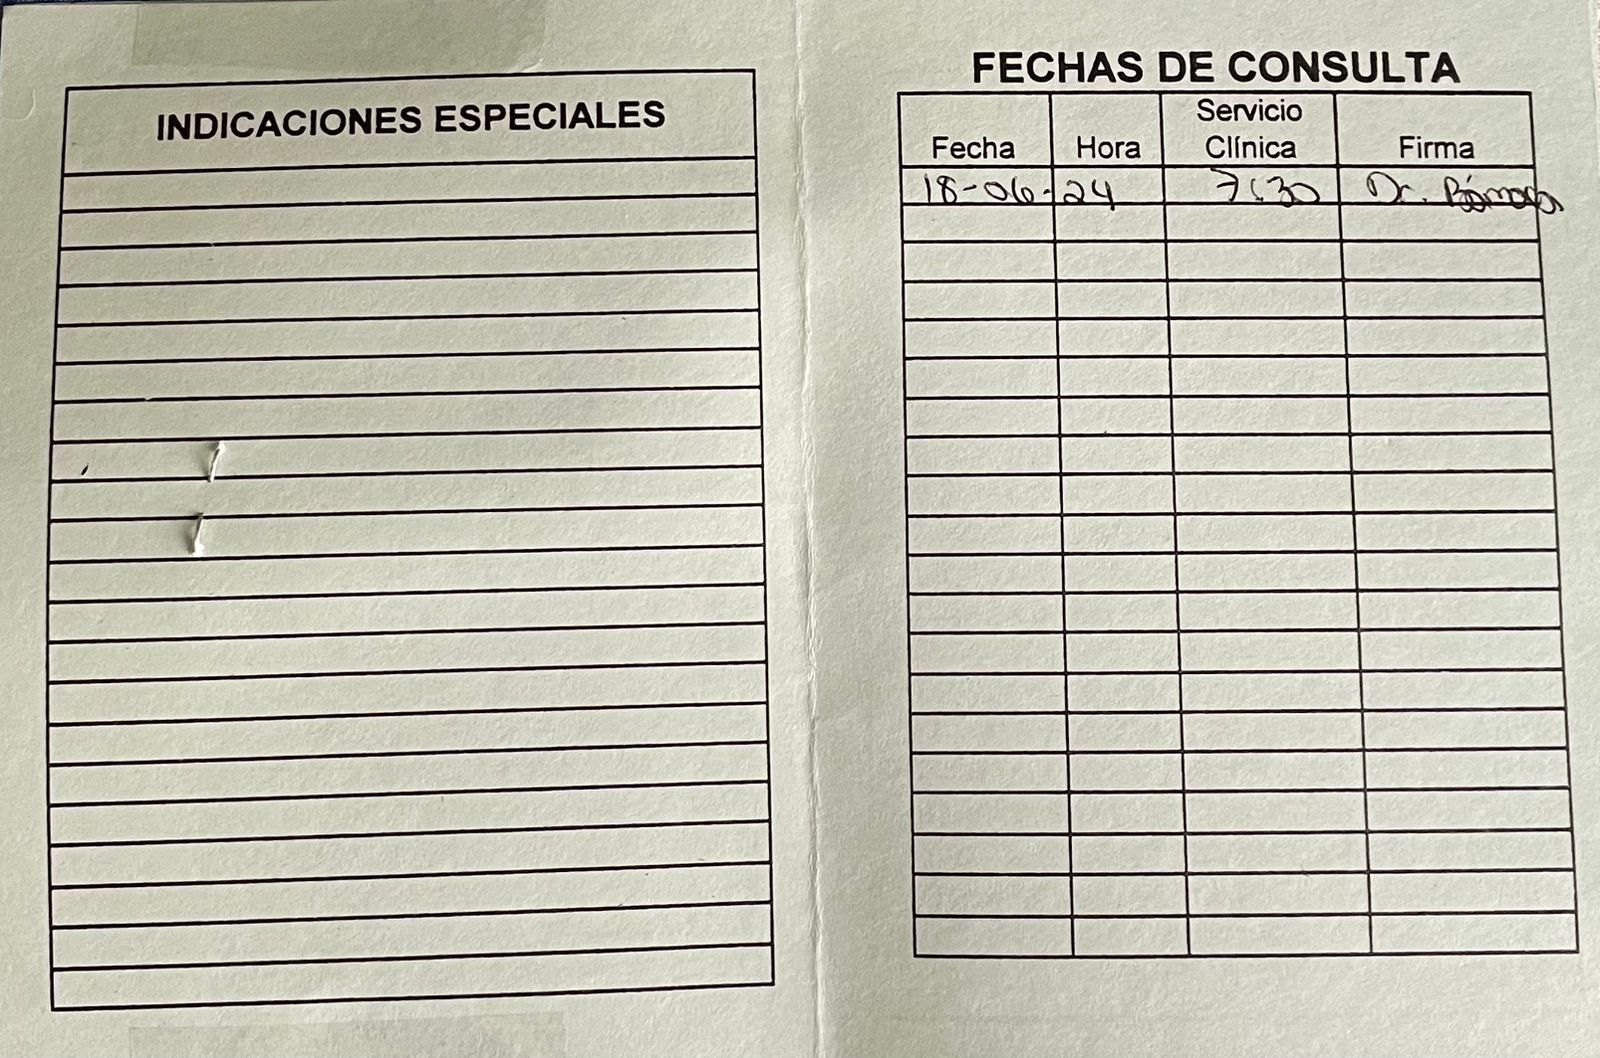 INDICACIONES ESPECIALES
FECHAS DE CONSULTA
Fecha Hora Servicio Clínica Firma
18-06-24 7:30 Dr.